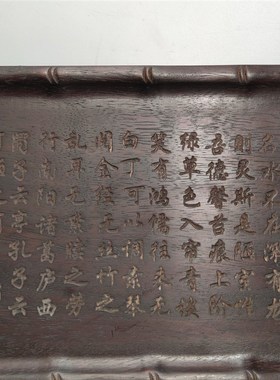 名水不在深有龙
则灵斯是陋室惟
吾德馨苔痕上阶
绿草色入帘青谈
笑有鸿儒往来无
白丁可以调素琴
阅金经无丝竹之
乱耳无案牍之劳
形南阳诸葛庐西
蜀子云亭孔子云